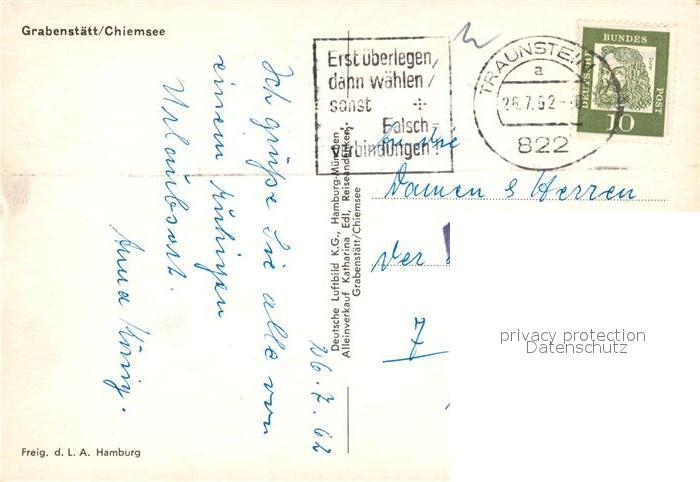 Grabenstätt/Chiemsee
Erst überlegen,
dann wählen/
sonst
Falsch=
verbindungen!
TRAUNSTEIN
a
26.7.62-
822
BUNDES
DEUTSCHE
POST
10
26.7.62
Ich grüße Sie alle von
einem ruhigen
Urlaubsort.
Anna König.
Deutsche Luftbild K.G., Hamburg-München
Alleinverkauf Katharina Edl, Reiseandenken,
Grabenstätt/Chiemsee
An die
Damen & Herren
der
7
privacy protection
Datenschutz
Freig. d. L. A. Hamburg